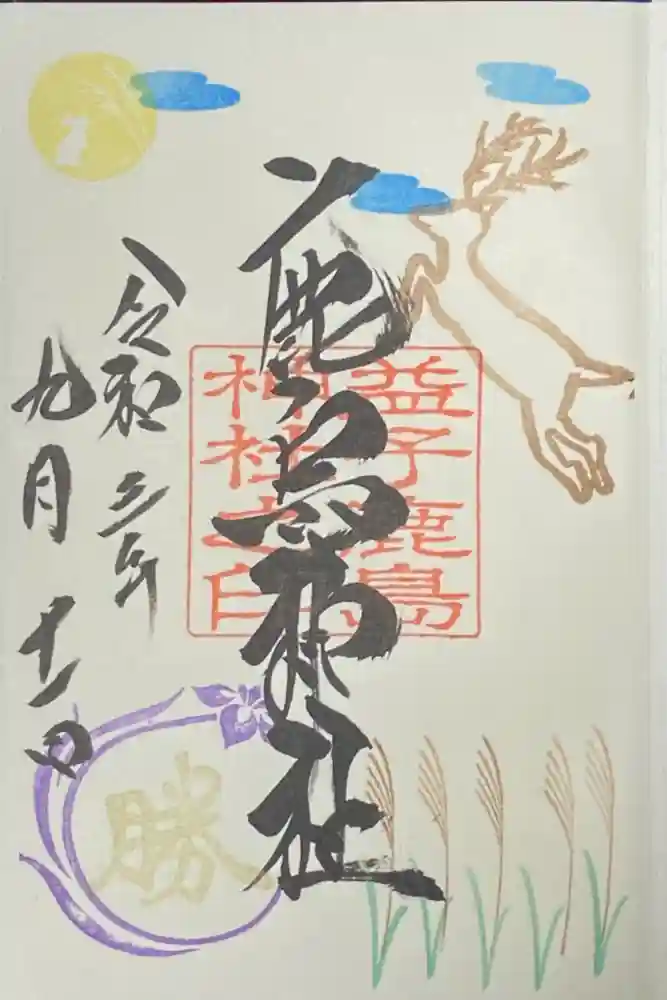 鹿島神社
益子鹿島
神社之印
令和三年
九月十一日
勝